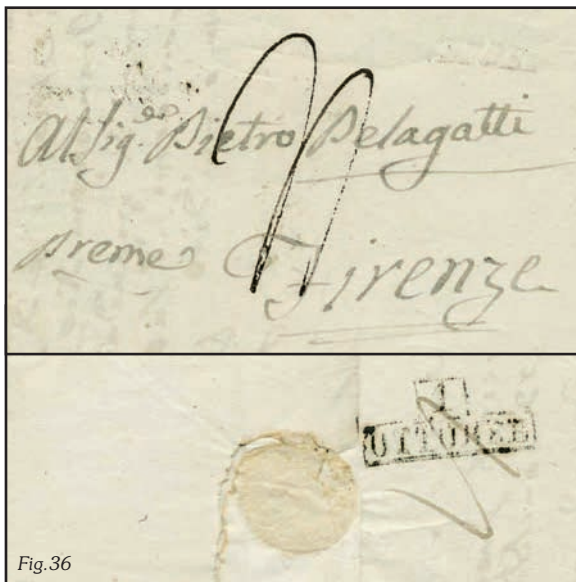 Al Sig.re Pietro Pelagatti
preme Firenze
1
OTTOBRE
Fig.36